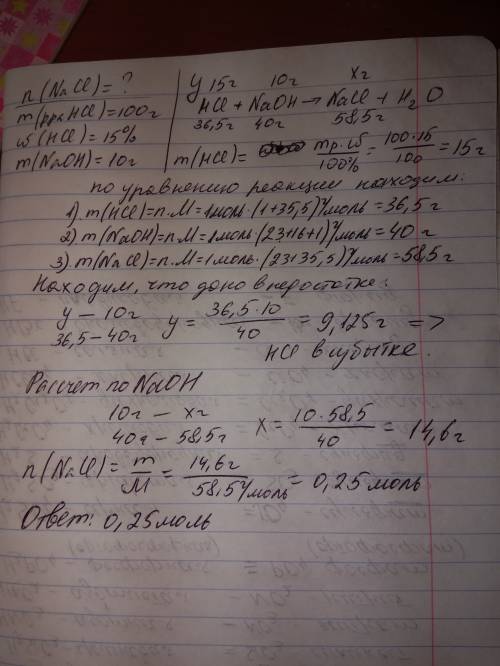 n(NaCl)=?
m(рраHCl)=100г
ω(HCl)=15%
m(NaOH)=10г
у 15г 10г xг
HCl + NaOH → NaCl + H₂O
36,5г 40г 58,5г
m(HCl)= mр.ω/100% = 100·15/100 = 15г
по уравнению реакции находим:
1). m(HCl)=n.M=1моль·(1+35,5)г/моль=36,5г
2). m(NaOH)=n.M=1моль·(23+16+1)г/моль=40г
3). m(NaCl)=n.M=1моль·(23+35,5)г/моль=58,5г
Находим, что дано в недостатке:
у – 10г
36,5 – 40г
y = 36,5·10/40 = 9,125г =>
HCl в избытке.
Рассчет по NaOH
10г – xг
40г – 58,5г
x = 10·58,5/40 = 14,6г
n(NaCl)= m/M = 14,6г/58,5г/моль = 0,25моль
Ответ: 0,25моль